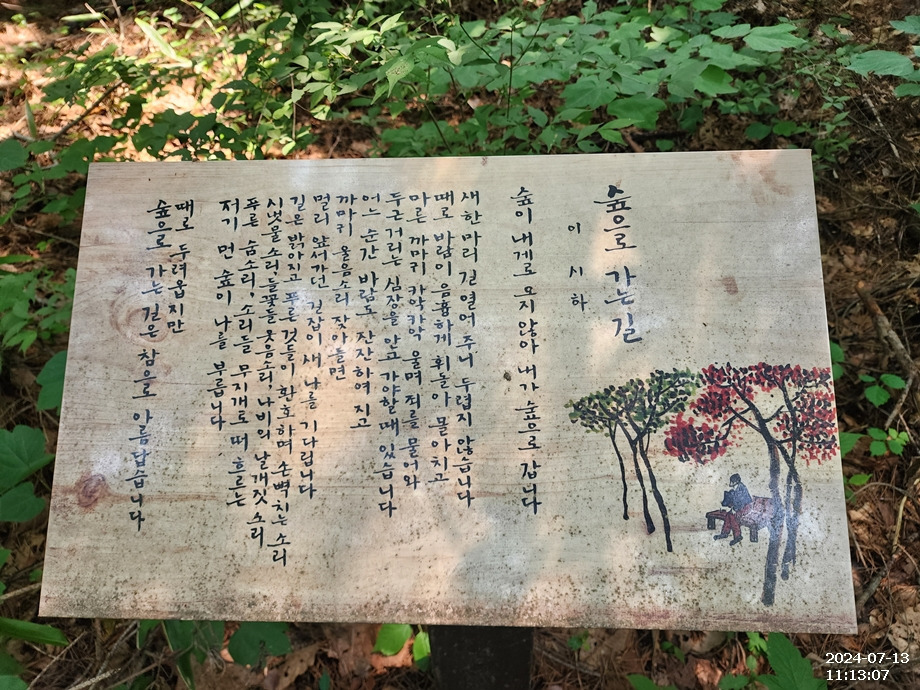 숲으로 가는 길
이 시 하
숲이 내게로 오지 않아 내가 숲으로 갑니다
새 한마리 길 열어 주니 두렵지 않습니다
때로 바람이 음흉하게 휘돌아 몰아치고
마른 까마귀 카악카악 울며 죄를 물어와
두근거리는 심장을 안고 가야할 때 있습니다
어느 순간 바람도 잔잔하여 지고
까마귀 울음소리 잦아들면
멀리 앞서가던 길잡이 새 나를 기다립니다
길은 밝아지고 푸른 것들이 환호하며 손뼉치는 소리
시냇물 소리 들꽃들 웃음소리 나비의 날개짓 소리
푸른 숨소리, 소리들 무지개로 떠 흐르는
저기 먼 숲이 나를 부릅니다
때로 두려웁지만
숲으로 가는 길은 참으로 아름답습니다
2024-07-13
11:13:07